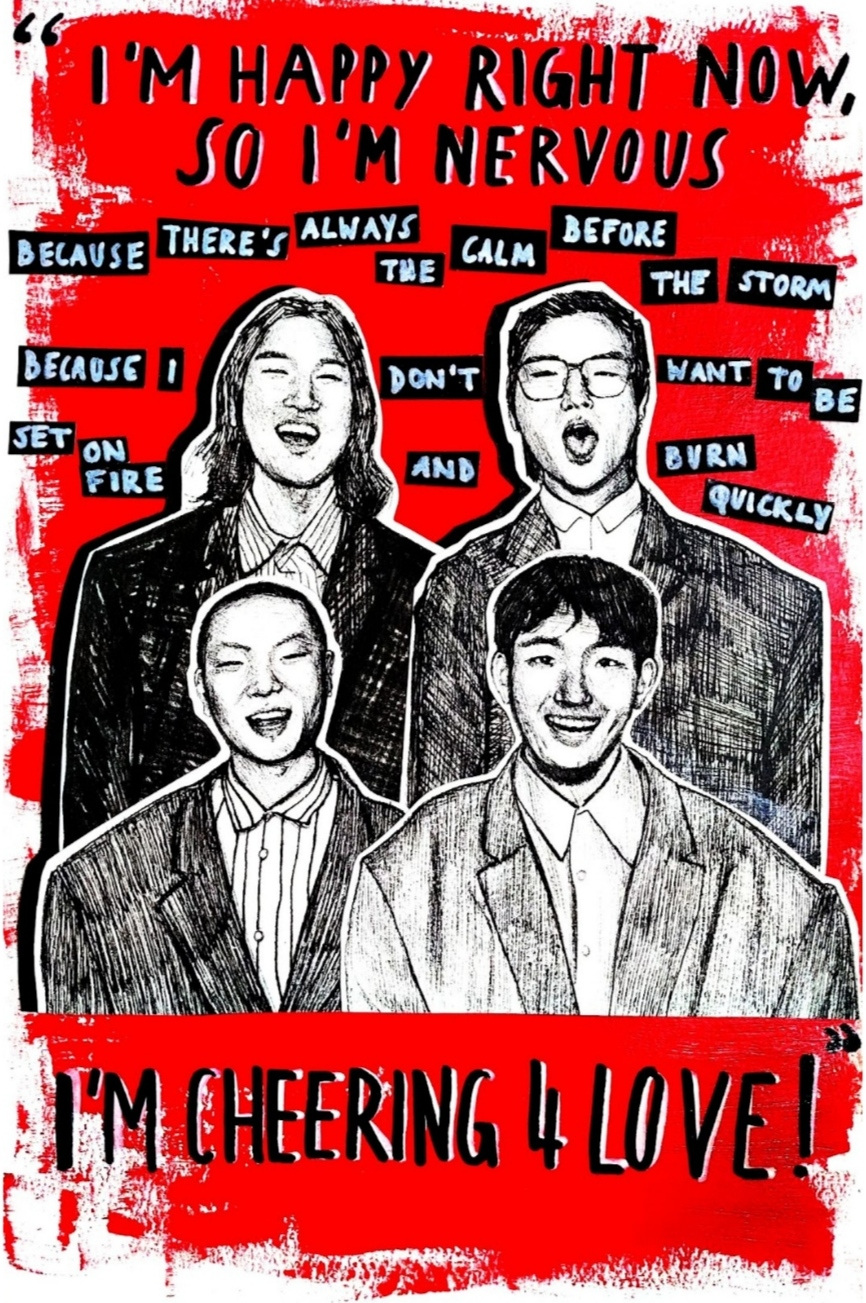 “I'M HAPPY RIGHT NOW,
SO I'M NERVOUS
BECAUSE THERE'S ALWAYS THE CALM BEFORE THE STORM
BECAUSE I DON'T WANT TO BE
SET ON FIRE AND BURN QUICKLY
I'M CHEERING 4 LOVE!”